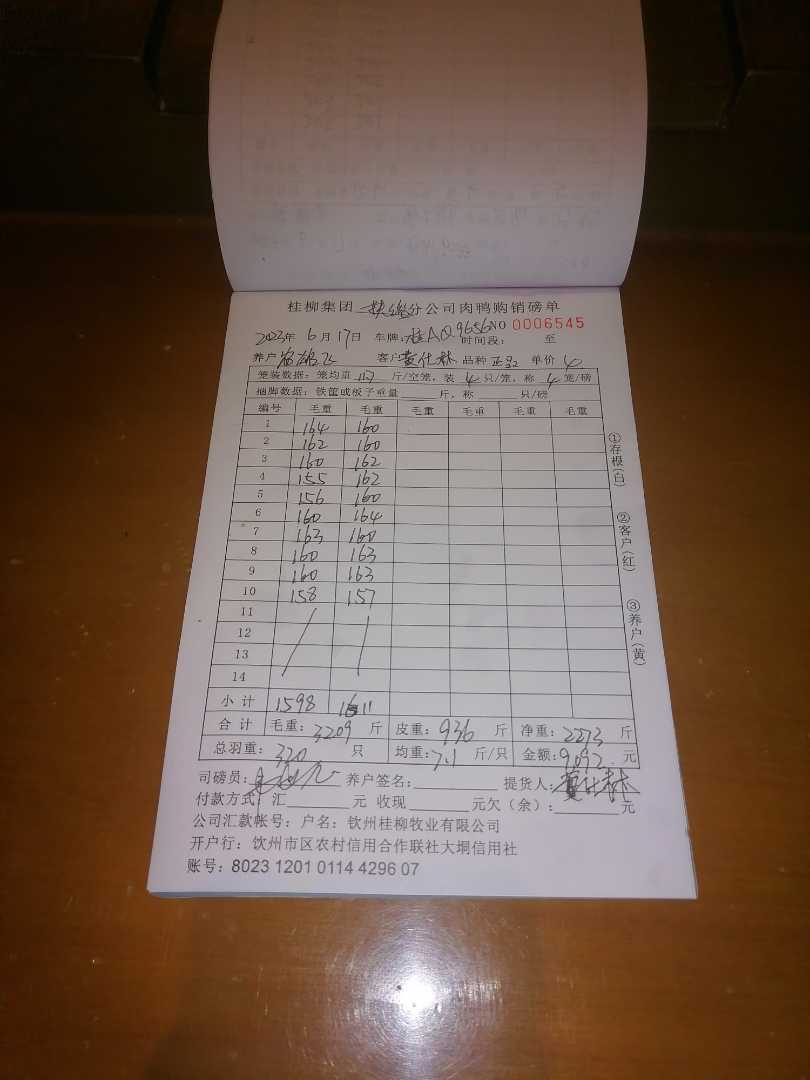 桂柳集团 分公司肉鸭购销磅单
2023年 6 月 17日 车牌:桂AQ9656 NO 0006545
时间段: 至
养户 客户 黄仕林 品种 正品 单价 4.
笼装数据:笼均重 117 斤/空笼,装 4 只/笼,称 4 笼/磅
捆脚数据:铁筐或板子重量 斤,称 只/磅
编号 毛重 毛重 毛重 毛重 毛重 毛重
1 164 160
2 162 160
3 160 162
4 155 162
5 156 160
6 160 164
7 163 160
8 160 163
9 160 163
10 158 157
11
12
13
14
小 计 1598 1611
合 计 毛重:3209 斤 皮重:936 斤 净重:2273 斤
总羽重:320 只 均重:7.1 斤/只 金额:9092. 元
司磅员: 养户签名: 提货人:黄仕林
付款方式:汇 元 收现 元欠(余): 元
公司汇款帐号:户名:钦州桂柳牧业有限公司
开户行:钦州市区农村信用合作联社大垌信用社
账号:8023 1201 0114 4296 07
①存根(白)
②客户(红)
③养户(黄)